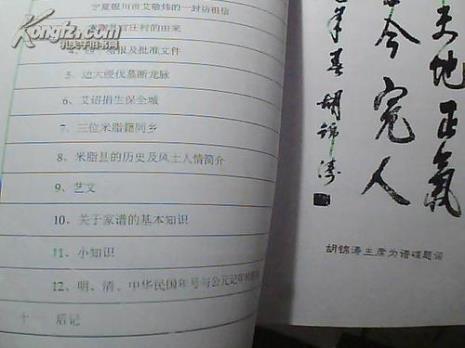 宁夏银川市艾敬炜的一封访祖信
Kongfz.com
孔夫子旧书网
官庄村的由来
报及批准文件
5、边大绶伐墓断龙脉
6、艾诏捐生保全城
7、三位米脂籍同乡
8、米脂县的历史及风土人情简介
9、艺文
10、关于家谱的基本知识
11、小知识
12、明、清、中华民国年号与公元记年
十 后记
天地正氣
完人
胡锦涛
胡锦涛主席为谱牒题词